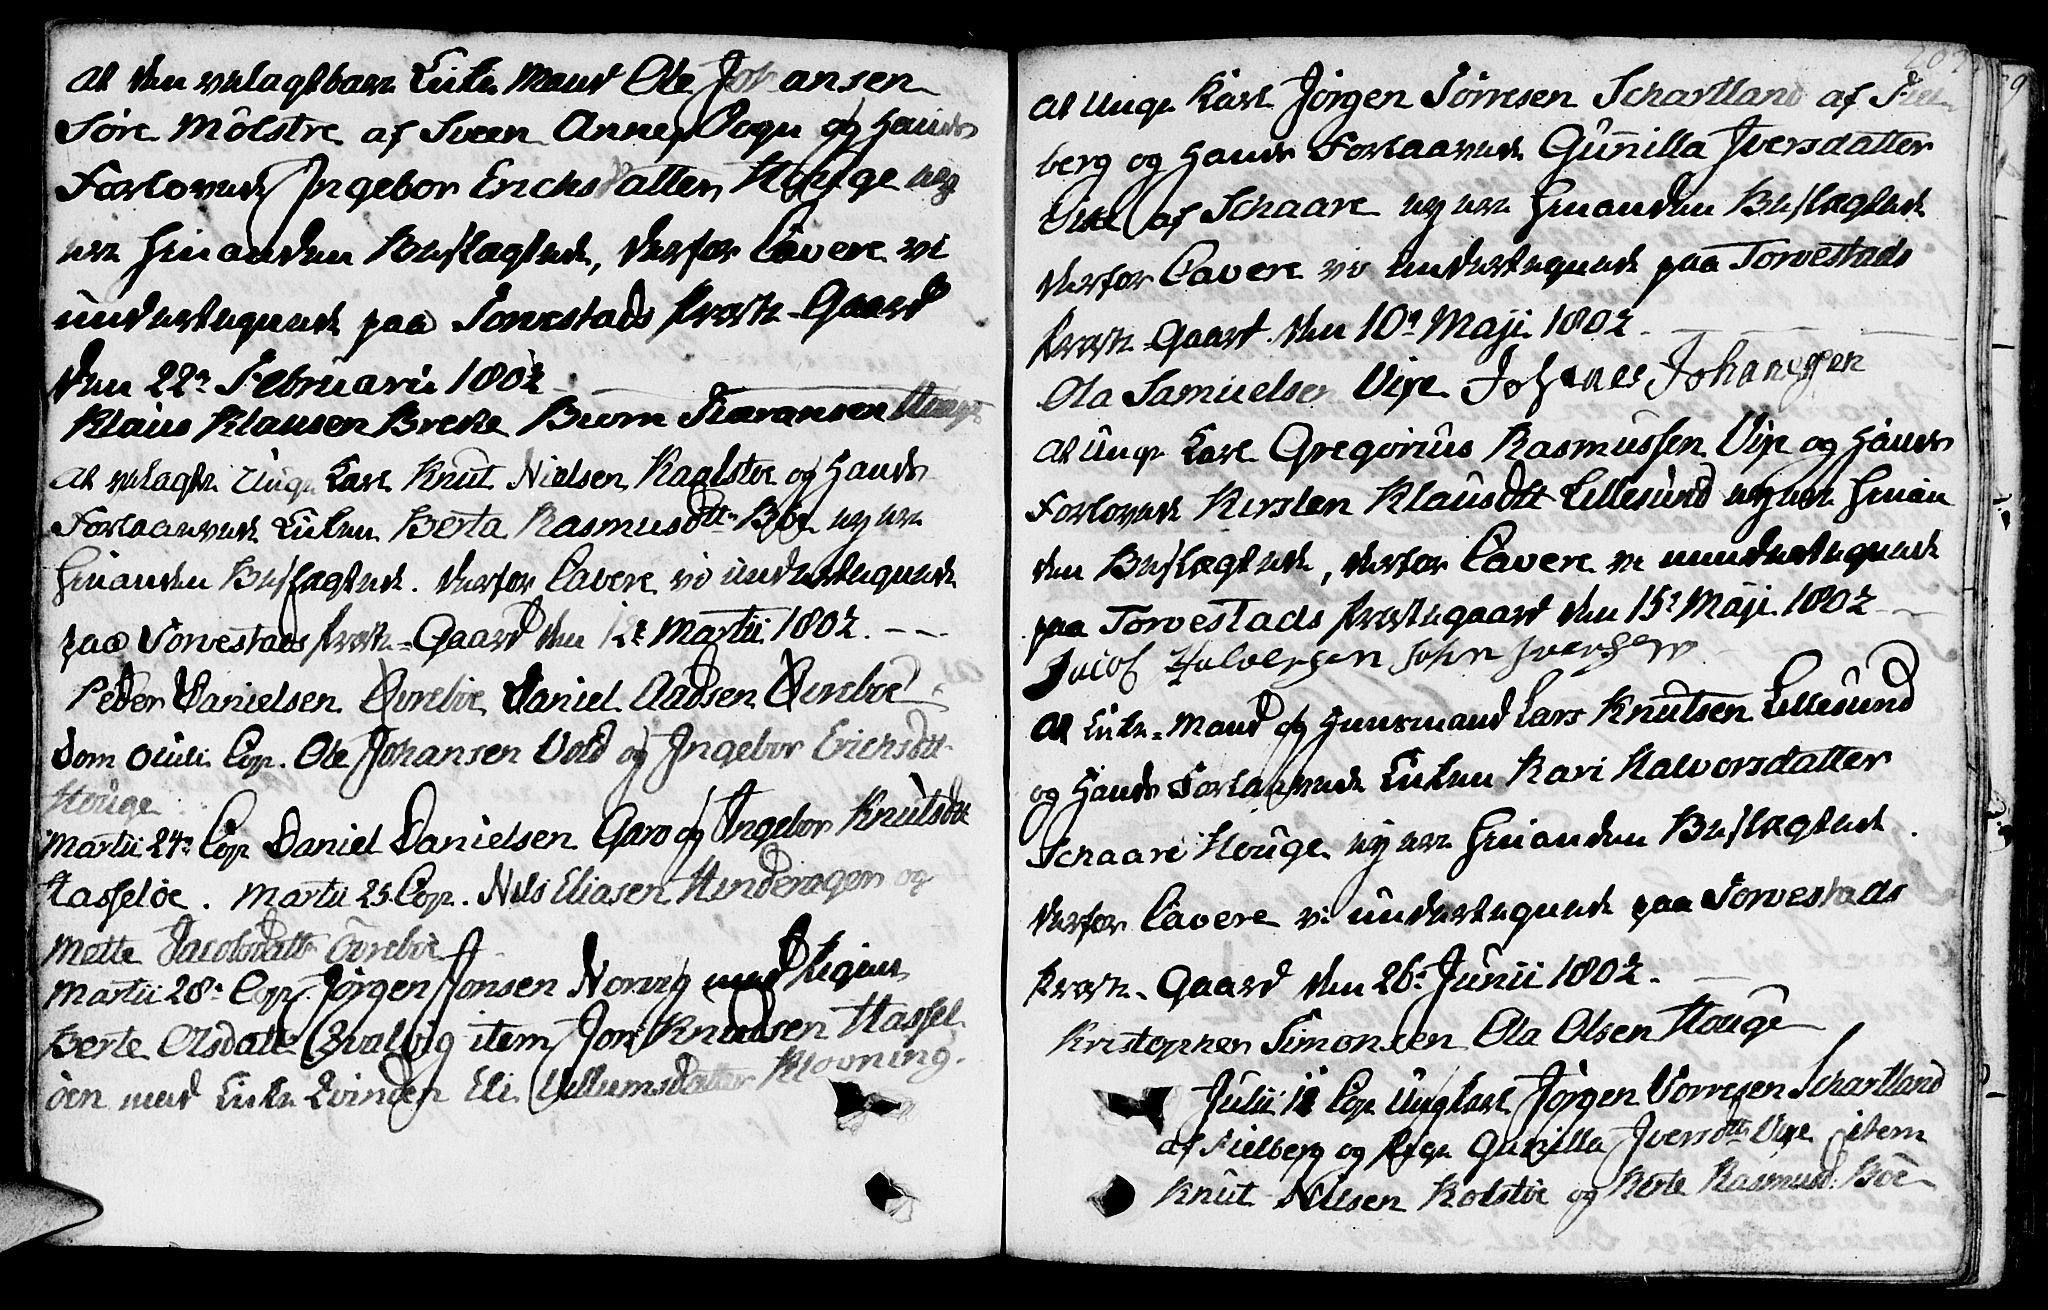 at den velagtbare Enke Mand Ole Johansen
Søre Mølstre af Sveen Annex Sogn og Hands
Forlovede Ingebor Erichsdatter Houge ney
ere hinanden Beslægtede, derfor Cavere vi
undertegnede paa Torvestads Præste-Gaard
den 22n Februarii 1802
Klaus Klausen Breke Biørn Siøransen
at velagte Unge Karl Knut Nielsen Kaalstøe og Hands
Forlaavede Enken Berta Rasmusdtt. Bøe ey ere
hinanden Beslægtede. derfor Cavere vi undertegnede
paa Torvestads Præste-Gaard den Martii 1802.
Peder Danielsen Øvrebøe Daniel Aadsen Øvreboe
Dom oculi Cop. Ole Johansen Vold og Ingebor Erichsdtt.
Houge
Martii 24n Cop Daniel Danielsen Garo og Ingebor Knutsdtt
Hasseløe. Martii 25 Cop. Nils Eliasen Hinderagen og
Mette Jacobsdatt. Øvrebøe
Martii 28n Cop. Jørgen Jonsen Norvig med Pigen
Berte Olsdatt. Qvalvig item Jon Knudsen Hassel
øen med Enke Qvinden Eli Villumsdatter Klovning.
at Unge Karl Jørgen Tørresen Schartland af Fiel
berg og Hands Forlaavede Gunilla Iversdatter
Vixe af Schaare ey ere hinanden Beslægtede
derfor Cavere vi undertegnede paa Torvestads
Præste-Gaard. den 10n Maji 1802
Ola Samuelsen Vixe Johanes Johanesen
at Unge Karl Gregorius Rasmussen Vixe og Hands
Forlovede Kirsten Klausdtt Lillesund ey ere hinan
den Beslægtede, derfor Cavere vi undertegnede
paa Torvestads Præstegaard den 15n Maji 1802
Jacob Halversen John Iversen
at Enke-Mand og Huusmand Lars Knutsen Lillesund
og Hands Forlaavede Enken Kari Halvorsdatter
Schaare Houge ey ere hinanden Beslægtede.
derfor Cavere vi undertegnede paa Torvestads
Præste-Gaard den 26n Junii 1802.
Kristopher Simonsen Ola Olsen Houge
Julii Cop Ungkarl Jørgen Torresen Schartland
af Fielberg og Pige Gunilla Iversdtt Vixe item
Knut Nilsen Kolstøe og Berte Rasmusd. Bøe